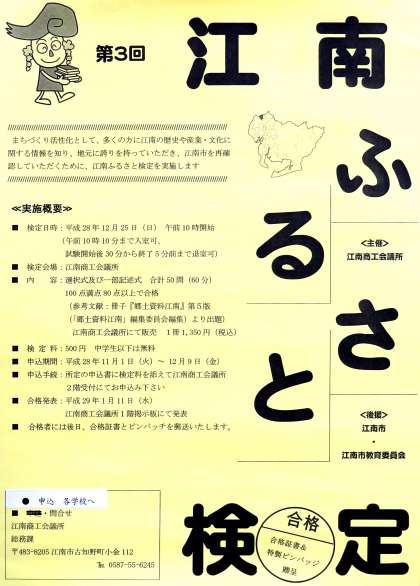 第3回
江南
ふるさと
検定
まちづくり活性化として、多くの方に江南の歴史や産業・文化に
関する情報を知り、地元に誇りを持っていただき、江南市を再確
認していただくために、江南ふるさと検定を実施します
≪実施概要≫
■ 検定日時：平成28年12月25日（日） 午前10時開始
（午前10時10分まで入室可、
試験開始後30分から終了5分前まで退室可）
■ 検定会場：江南商工会議所
■ 内 容：選択式及び一部記述式 合計50問（60分）
100点満点80点以上で合格
（参考文献：冊子『郷土資料江南』第5版
（「郷土資料江南」編集委員会編集）より出題）
江南商工会議所にて販売 1冊1,350円（税込）
■ 検定料：500円 中学生以下は無料
■ 申込期間：平成28年11月1日（火）～12月9日（金）
■ 申込手続：所定の申込書に検定料を添えて江南商工会議所
2階受付にてお申込み下さい
■ 合格発表：平成29年1月11日（水）
江南商工会議所1階掲示板にて発表
■ 合格者には後日、合格証書とピンバッチを郵送いたします。
≪主催≫
江南商工会議所
≪後援≫
江南市
・
江南市教育委員会
● 申込 各学校へ
■ ・問合せ
江南商工会議所
総務課
〒483-8205 江南市古知野町小金112
℡ 0587-55-6245
合格
合格証書&
特製ピンバッジ
贈呈